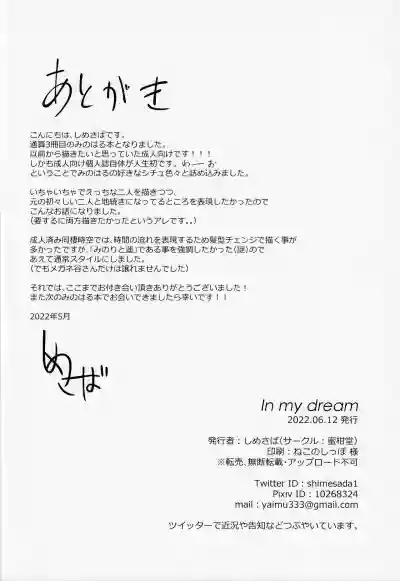 あとがき
こんにちは、しめさばです。
通算3冊目のみのはる本となりました。
以前から描きたいと思っていた成人向けです!!!
しかも成人向け個人誌自体が人生初です。わーーお
ということでみのはるの好きなシチュ色々と詰め込みました。
いちゃいちゃでえっちな二人を描きつつ、
元の初々しい二人と地続きになってるところを表現したかったので
こんなお話になりました。
(要するに両方描きたかったというアレです。。)
成人済み同棲時空では、時間の流れを表現するため髪型チェンジで描く事が
多かったですが、「みのりと遥」である事を強調したかった(謎)ので
あえて通常スタイルにしました。
(でもメガネ谷さんだけは譲れませんでした)
それでは、ここまでお付き合い頂きありがとうございました!
また次のみのはる本でお会いできましたら幸いです!!
2022年5月
しめさば
In my dream
2022.06.12 発行
発行者:しめさば(サークル:蜜柑堂)
印刷:ねこのしっぽ 様
※転売、無断転載・アップロード不可
Twitter ID:shimesada1
Pixiv ID:10268324
mail:yaimu333@gmail.com
ツイッターで近況や告知などつぶやいています。